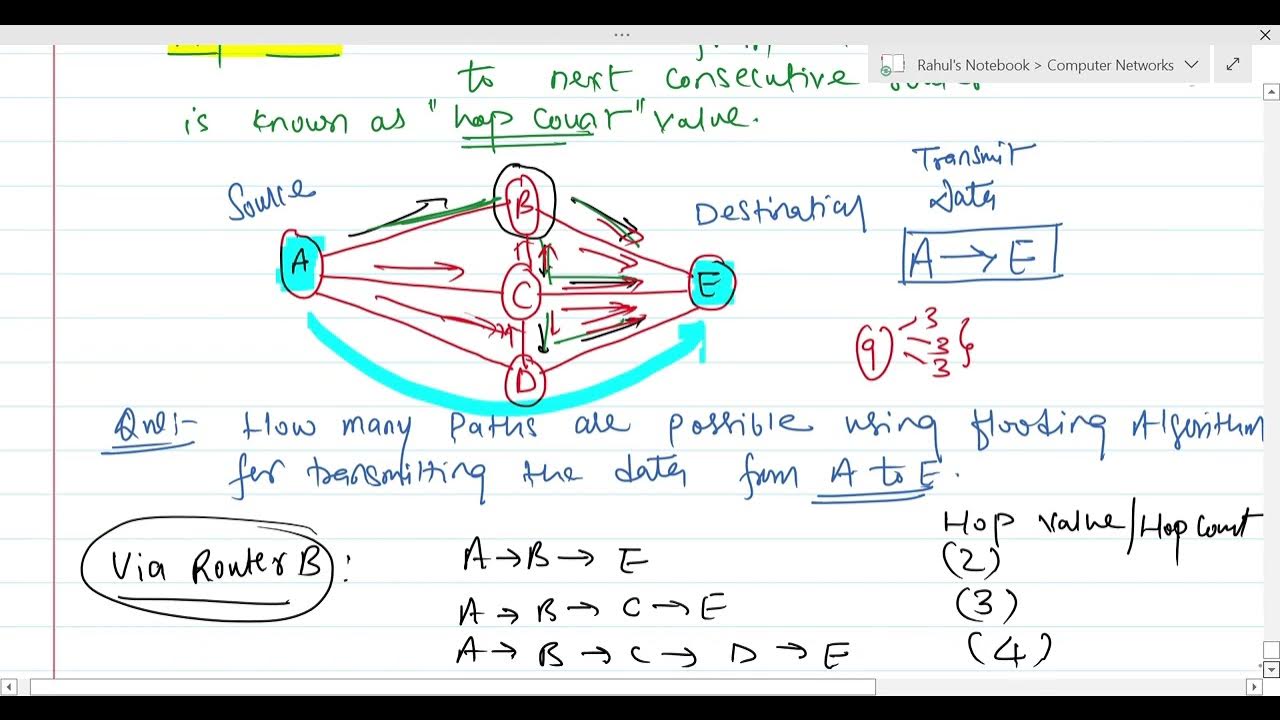 Rahul's Notebook > Computer Networks
to next consecutive
is known as "hop count" value.
Source
Transmit
data
Destination
A → E
A
B
C
D
E
9
3
3
3
Que:- How many Paths are possible using flooding Algorithm
for transmitting the data from A to E.
Hop value/Hop count
Via Router B:
A → B → E (2)
A → B → C → E (3)
A → B → C → D → E (4)